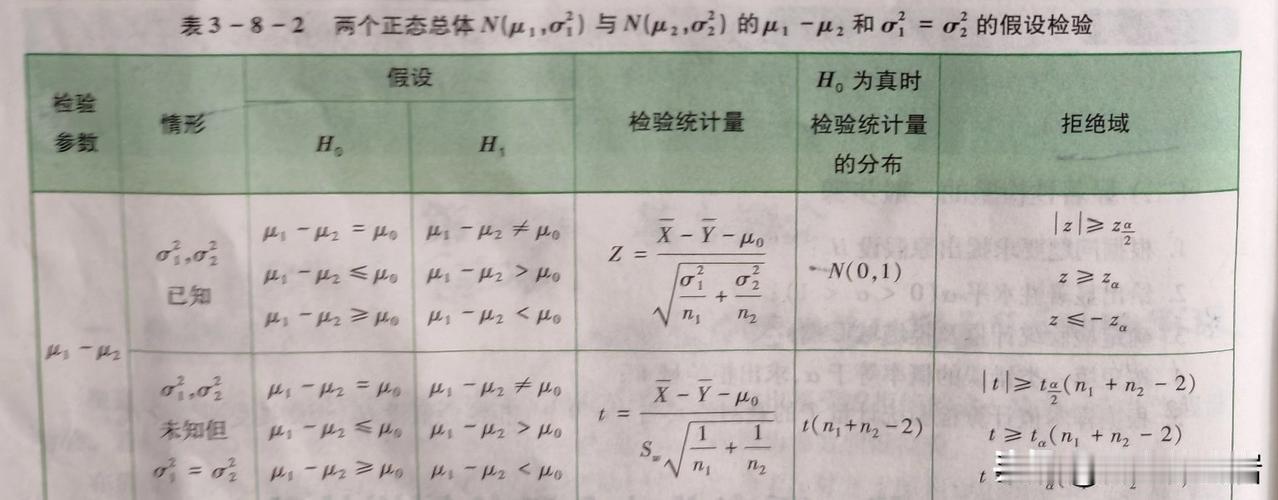 表3-8-2 两个正态总体 N(μ₁,σ₁²) 与 N(μ₂,σ₂²) 的 μ₁-μ₂ 和 σ₁² = σ₂² 的假设检验
检验参数 情形 假设 检验统计量 H₀ 为真时检验统计量的分布 拒绝域
H₀ H₁
μ₁-μ₂
σ₁²,σ₂² 已知
μ₁-μ₂ = μ₀ μ₁-μ₂ ≠ μ₀
μ₁-μ₂ ≤ μ₀ μ₁-μ₂ > μ₀
μ₁-μ₂ ≥ μ₀ μ₁-μ₂ < μ₀
Z = (X̄ - Ȳ - μ₀) / √(σ₁²/n₁ + σ₂²/n₂)
N(0,1)
|z| ≥ z_{α/2}
z ≥ z_α
z ≤ -z_α
σ₁²,σ₂² 未知但 σ₁² = σ₂²
μ₁-μ₂ = μ₀ μ₁-μ₂ ≠ μ₀
μ₁-μ₂ ≤ μ₀ μ₁-μ₂ > μ₀
μ₁-μ₂ ≥ μ₀ μ₁-μ₂ < μ₀
t = (X̄ - Ȳ - μ₀) / (S_w √(1/n₁ + 1/n₂))
t(n₁+n₂-2)
|t| ≥ t_{α/2}(n₁+n₂-2)
t ≥ t_α(n₁+n₂-2)
t